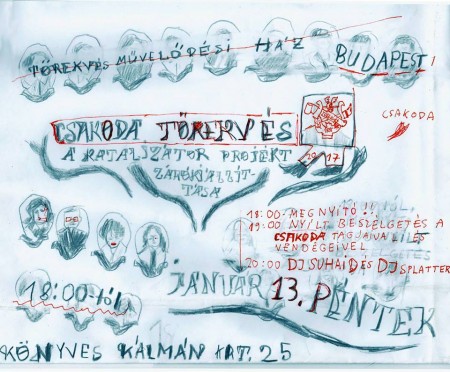 TÖREKVÉS MŰVELŐDÉSI HÁZ
BUDAPEST!
CSAKODA TÖREKVÉS
20 17
CSAKODA
A KATALIZÁTOR PROJEKT
ZÁRÓKIÁLLÍT-
TÁSA
18:00-MEGNYITÓ!!
19:00 NYÍLT BESZÉLGETÉS A
CSAKODA TAGJAIVAL ÉS
VENDÉGEIVEL
20:00 DJ SUHAID ÉS DJ SPLATTER
18:00-tól
JANUÁR 13. PÉNTEK
KÖNYVES KÁLMÁN KRT. 25